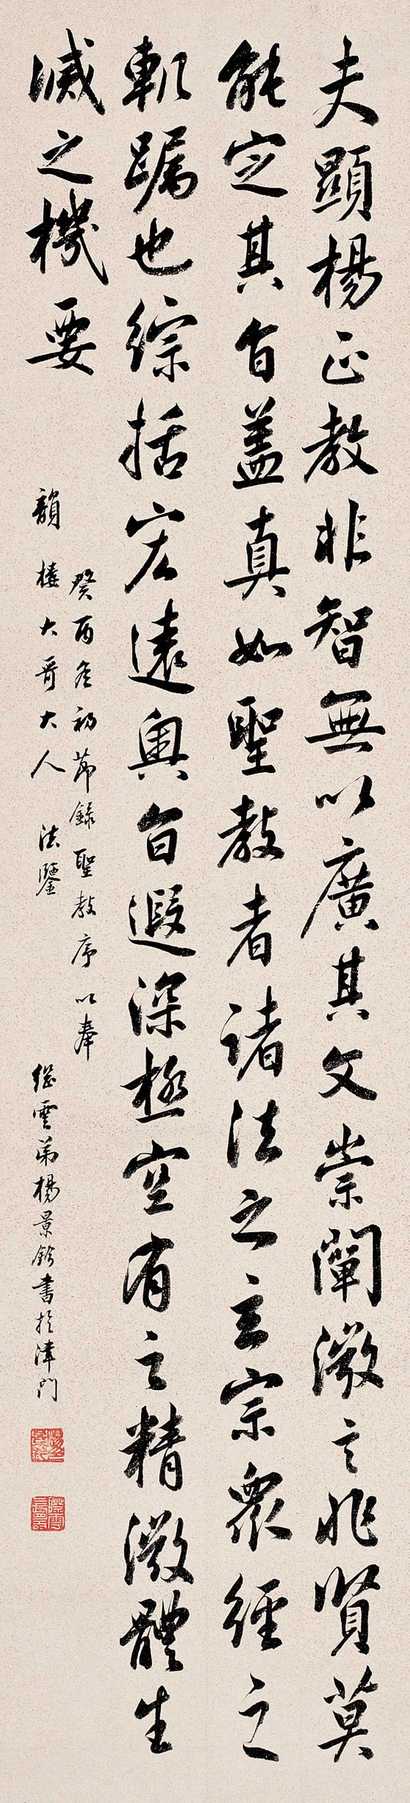 夫顯楊正教非智無以廣其文崇闡微言非賢莫
能定其旨蓋真如聖教者諸法之玄宗衆經之
軌躅也綜括宏遠奧旨遐深極空有之精微體生
滅之機要
癸酉冬初節錄聖教序以奉
韻樓大哥大人法鑒
繼雲弟楊景鈐書於津門